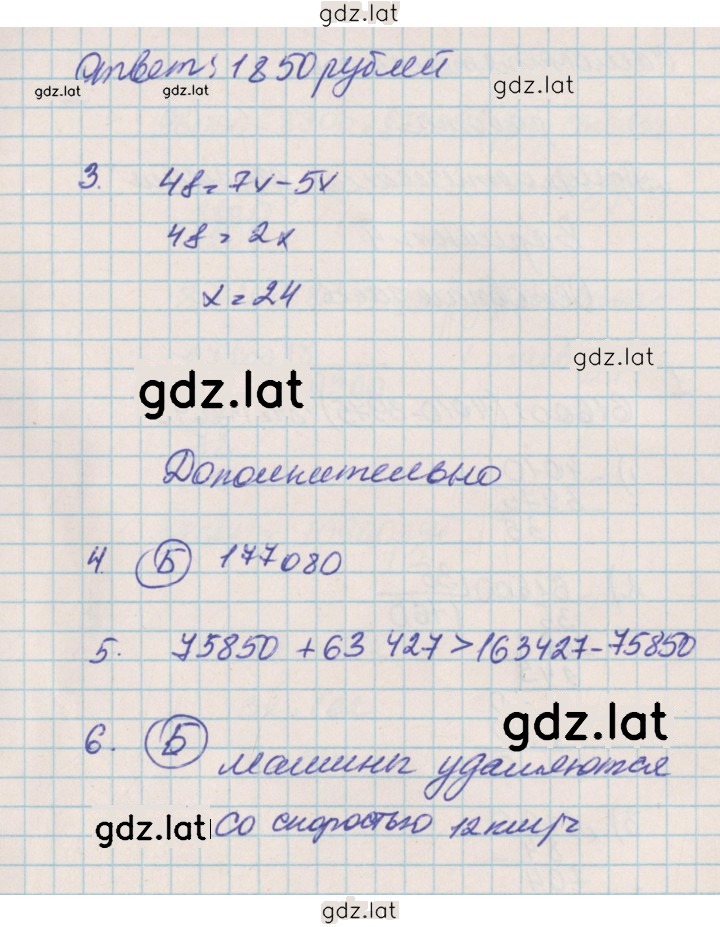 gdz.lat
Ответ: 1850 рублей
gdz.lat gdz.lat gdz.lat
3. 48 = 7x - 5x
48 = 2x
x = 24
gdz.lat
gdz.lat
Дополнительно
4. Б 177080
5. 75850 + 63 427 > 163427 - 75850
gdz.lat
6. Б машины удаляются
gdz.lat со скоростью 12 км/ч
gdz.lat